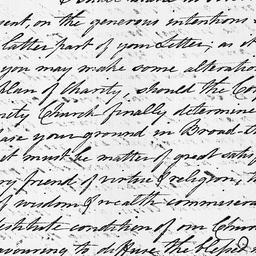 ent, on the generous intentions
latter part of your Letter; as it
you may make some alteration
Plan of Charity, should the Co
nety Church finally determine
ease your ground in Broad-
it must be matter of great satis
ry friend of virtue & religion,
of wisdom & wealth commission
stitute condition of our Chur
avouring to diffuse the blessed